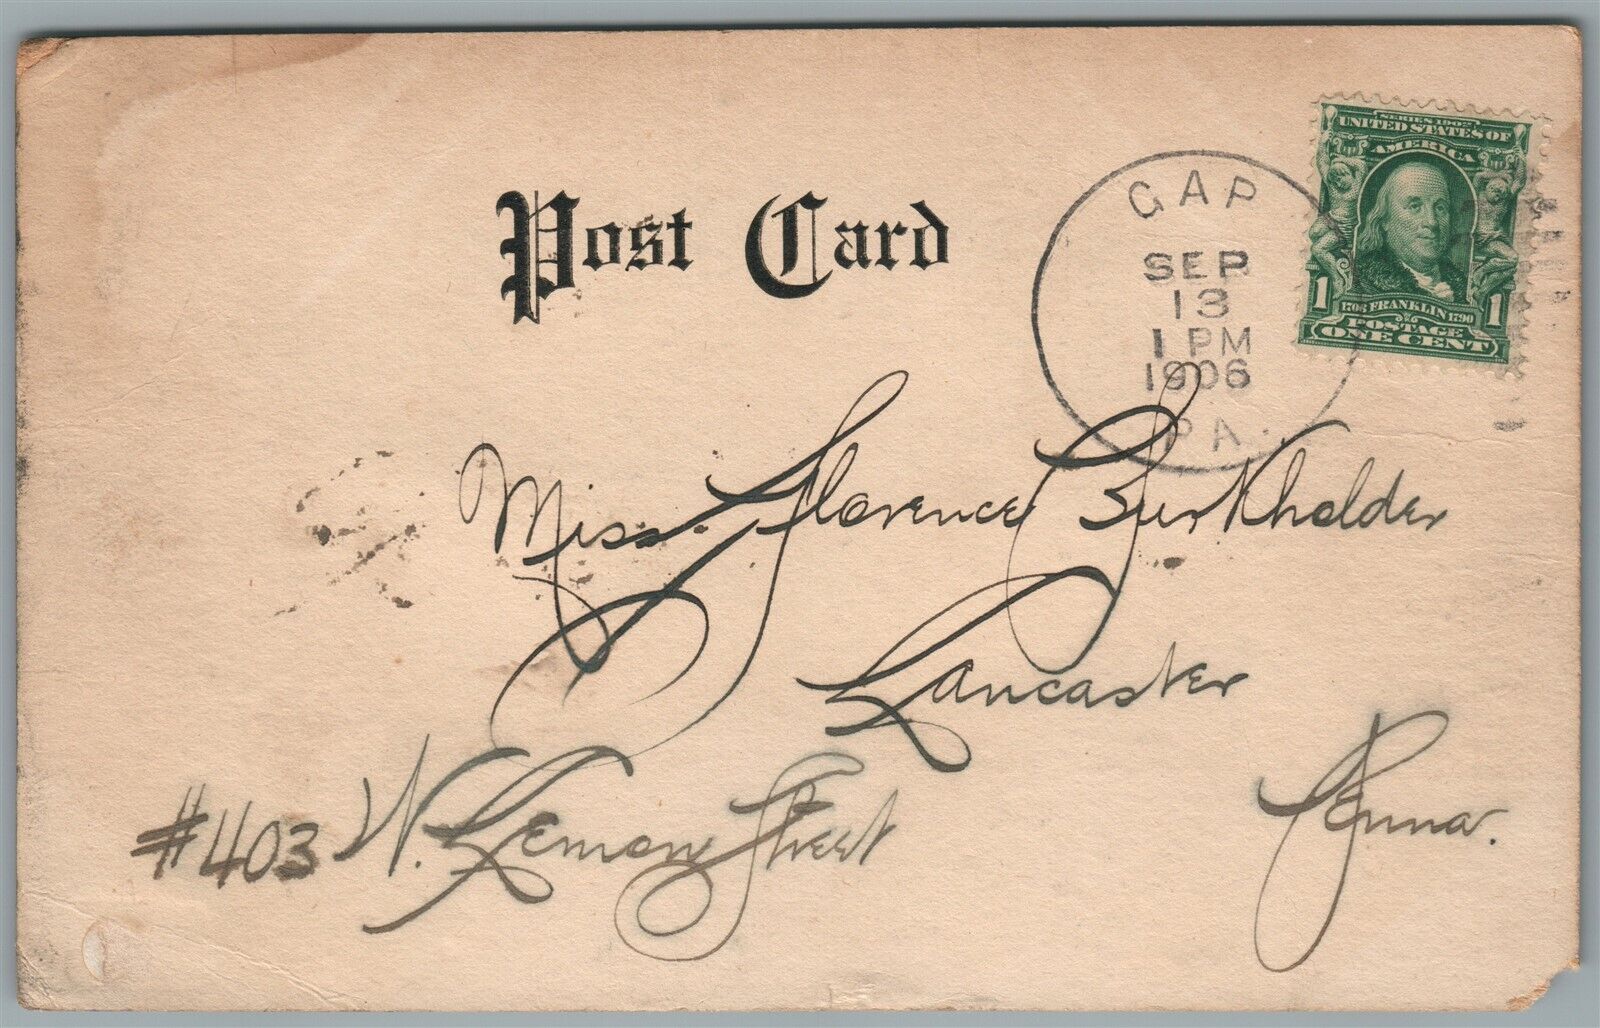 Post Card
GAP
SEP
13
1 PM
1906
PA.
SERIES 1902
UNITED STATES OF
AMERICA
1 1705 FRANKLIN 1790 1
POSTAGE
ONE CENT
Miss. Florence Burkholder
Lancaster
#403 N. Lemon Street Penna.